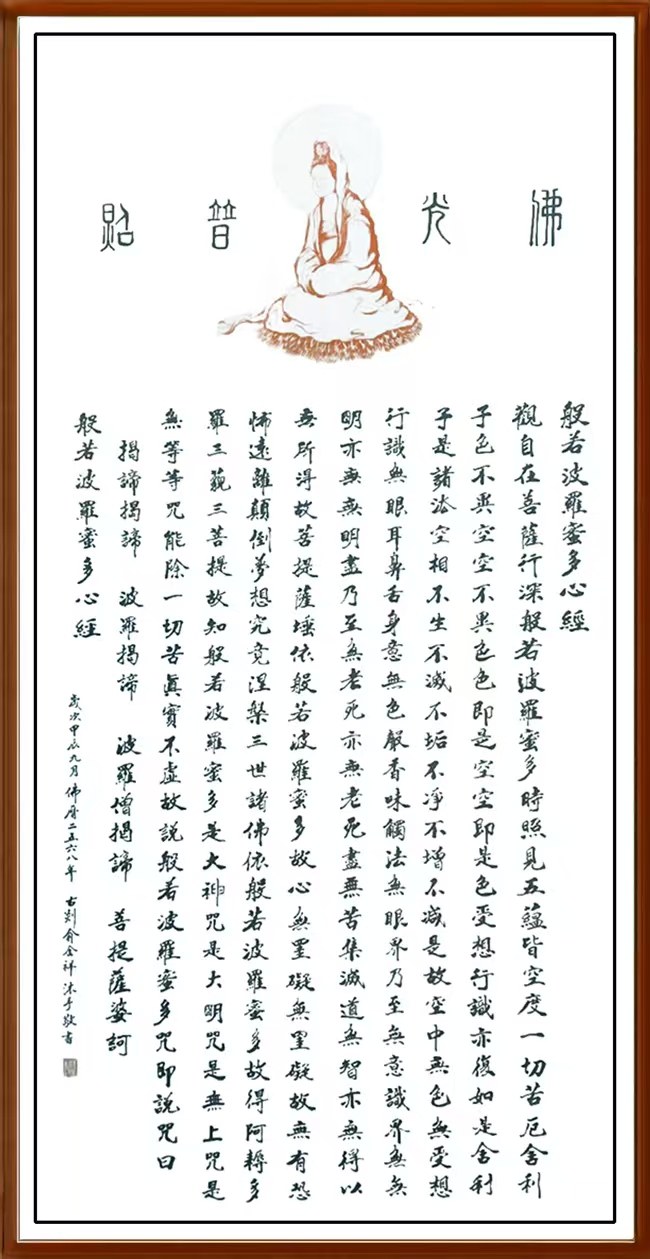 佛光普照
般若波羅蜜多心經
觀自在菩薩行深般若波羅蜜多時照見五蘊皆空度一切苦厄舍利
子色不異空空不異色色即是空空即是色受想行識亦復如是舍利
子是諸法空相不生不滅不垢不淨不增不減是故空中無色無受想
行識無眼耳鼻舌身意無色聲香味觸法無眼界乃至無意識界無無
明亦無無明盡乃至無老死亦無老死盡無苦集滅道無智亦無得以
無所得故菩提薩埵依般若波羅蜜多故心無罣礙無罣礙故無有恐
怖遠離顛倒夢想究竟涅槃三世諸佛依般若波羅蜜多故得阿耨多
羅三藐三菩提故知般若波羅蜜多是大神咒是大明咒是無上咒是
無等等咒能除一切苦眞實不虛故説般若波羅蜜多咒即説咒曰
揭諦揭諦 波羅揭諦 波羅僧揭諦 菩提薩婆訶
般若波羅蜜多心經
歲次甲辰九月佛曆二五六八年 古剡俞金祥沐手敬書